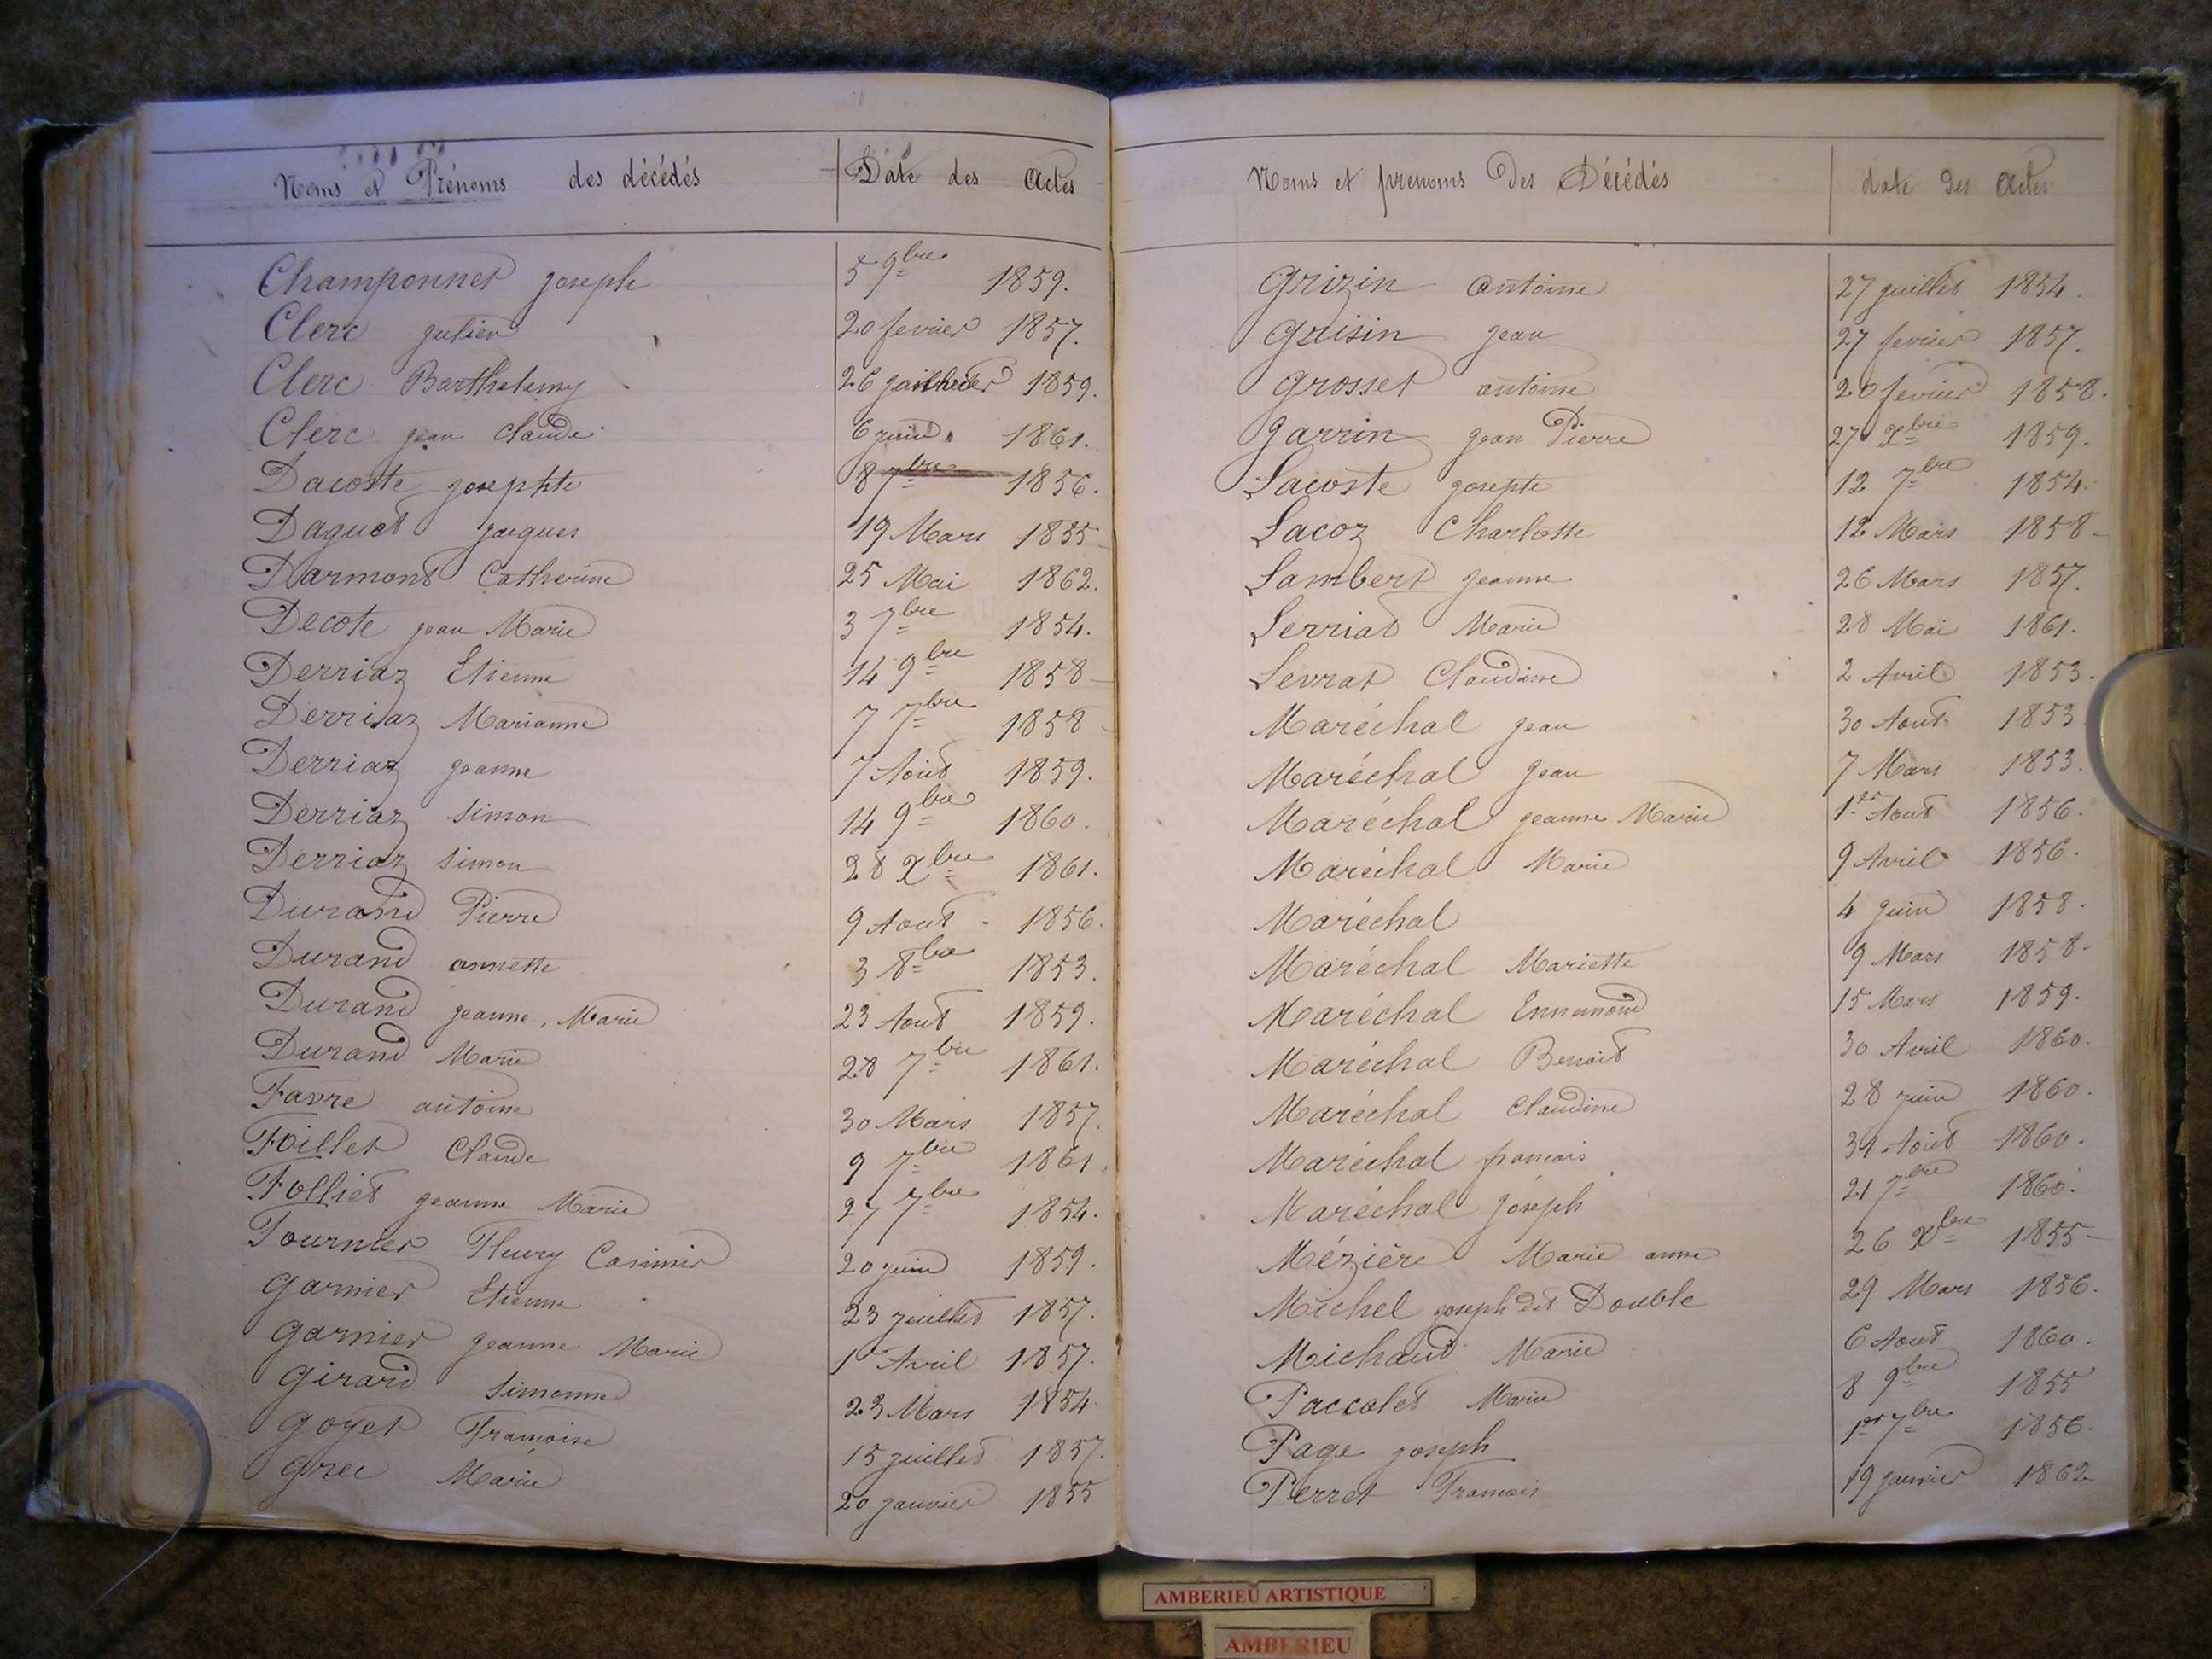 Noms et Prénoms des décédés Date des Actes
Champonnet joseph 5 9bre 1859.
Clerc julien 20 fevrier 1857.
Clerc Barthelemy 26 1859.
Clerc jean claude 6 juin 1861.
Dacoste josephte 8 7bre 1856.
Daguet jacques 19 Mars 1855
Darmont Catherine 25 Mai 1862.
Decote jean Marie 3 7bre 1854.
Derriaz Etienne 14 9bre 1858
Derriaz Marianne 7 7bre 1858
Derriaz jeanne 7 Aout 1859.
Derriaz simon 14 9bre 1860.
Derriaz simon 28 Xbre 1861.
Durand Pierre 9 Aout 1856.
Durand annette 3 8bre 1853.
Durand jeanne, Marie 23 Aout 1859.
Durand Marie 28 7bre 1861.
Favre antoine 30 Mars 1857.
Foillet Claude 9 7bre 1861.
Folliet jeanne Marie 27 7bre 1854.
Fournier Fleury Casimir 20 juin 1859.
Garnier Etienne 23 juillet 1857.
Garnier jeanne Marie 1er Avril 1857.
Girard Simonne 23 Mars 1854.
Goyet Francoise 15 juillet 1857.
Grec Marie 20 janvier 1855
Noms et prenoms des Décédés date des Actes
Grizin antoine 27 juillet 1854.
Grisin jean 27 fevrier 1857.
Grosset antoine 20 fevrier 1858.
Garrin jean Pierre 27 Xbre 1859.
Lacoste josepte 12 7bre 1854.
Lacoz Charlotte 12 Mars 1858
Lambert jeanne 26 Mars 1857.
Lerriat Marie 28 Mai 1861.
Levrat Claudine 2 Avril 1853.
Maréchal jean 30 Aout 1853
Maréchal jean 7 Mars 1853.
Maréchal jeanne Marie 1er Aout 1856.
Maréchal Marie 9 Avril 1856.
Maréchal 4 juin 1858.
Maréchal Mariette 9 Mars 1858.
Maréchal Ennemond 15 Mars 1859.
Maréchal Benoit 30 Avril 1860.
Maréchal Claudine 28 juin 1860.
Maréchal francois 31 Aout 1860.
Maréchal joseph 21 7bre 1860.
Mézière Marie anne 26 Xbre 1855
Michel joseph dit Double 29 Mars 1856.
Michaud Marie 6 Aout 1860.
Paccalet Marie 8 9bre 1855
Page joseph 1er 7bre 1856.
Perret Francois 19 janvier 1862
AMBERIEU ARTISTIQUE
AMBERIEU